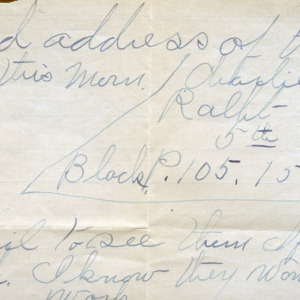 d address of t
this morn. / Charlie
Ralph
5th
Block P. 105. 15
to see them
I know they won